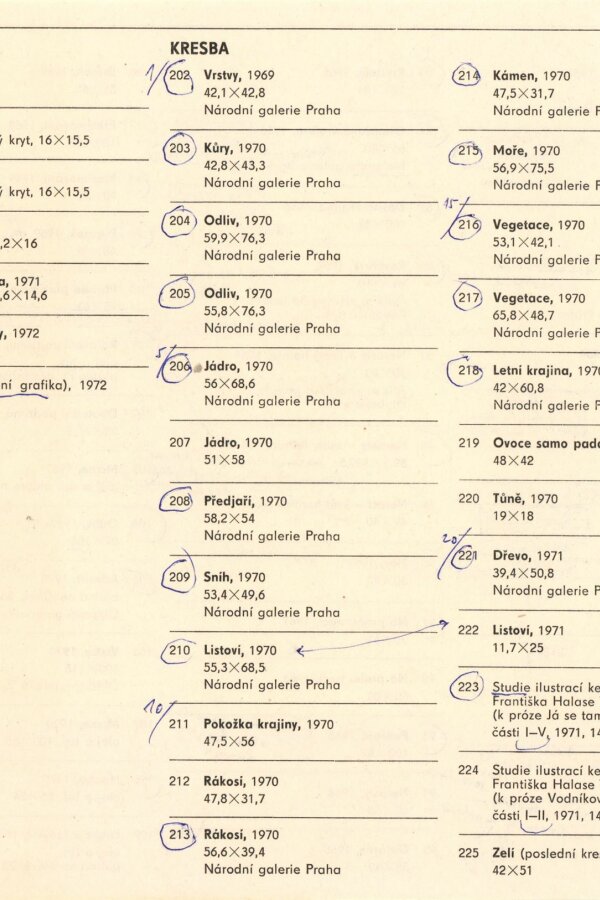 ý kryt, 16×15,5
ý kryt, 16×15,5
,2×16
a, 1971
,6×14,6
y, 1972
ní grafika), 1972
KRESBA
1/
202 Vrstvy, 1969
42,1×42,8
Národní galerie Praha
203 Kůry, 1970
42,8×43,3
Národní galerie Praha
204 Odliv, 1970
59,9×76,3
Národní galerie Praha
205 Odliv, 1970
55,8×76,3
Národní galerie Praha
5/
206 Jádro, 1970
56×68,6
Národní galerie Praha
207 Jádro, 1970
51×58
208 Předjaří, 1970
58,2×54
Národní galerie Praha
209 Sníh, 1970
53,4×49,6
Národní galerie Praha
210 Listoví, 1970
55,3×68,5
Národní galerie Praha
10/
211 Pokožka krajiny, 1970
47,5×56
212 Rákosí, 1970
47,8×31,7
213 Rákosí, 1970
56,6×39,4
Národní galerie Praha
214 Kámen, 1970
47,5×31,7
Národní galerie P
215 Moře, 1970
56,9×75,5
Národní galerie P
15/
216 Vegetace, 1970
53,1×42,1
Národní galerie P
217 Vegetace, 1970
65,8×48,7
Národní galerie P
218 Letní krajina, 1970
42×60,8
Národní galerie P
219 Ovoce samo pad
48×42
220 Tůně, 1970
19×18
20/
221 Dřevo, 1971
39,4×50,8
Národní galerie P
222 Listoví, 1971
11,7×25
223 Studie ilustrací ke
Františka Halase
(k próze Já se tam
části I–V, 1971, 14
224 Studie ilustrací ke
Františka Halase
(k próze Vodníkov
části I–II, 1971, 14
225 Zelí (poslední kre
42×51